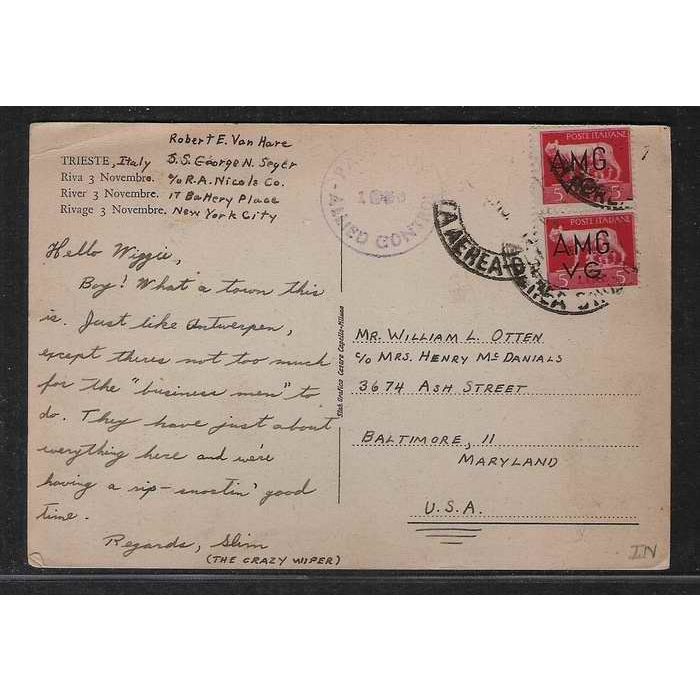 Robert E. Van Hare
TRIESTE, Italy S.S. George N. Seger
Riva 3 Novembre. c/o R.A. Nicols Co.
River 3 Novembre. 17 Battery Place
Rivage 3 Novembre. New York City
Hello Wiggie,
Boy! What a town this
is. Just like Antwerpen,
except theres not too much
for the "business men" to
do. They have just about
everything here and we're
having a rip-snostin' good
time.
Regards, Slim
(THE CRAZY WIPER)
ALLIED CONTR
Stab. Grafico Cesare Capello-Milano
POSTE ITALIANE
A.M.G.
5
POSTE ITALIANE
A.M.G.
V.G.
5 5
TA AEREA
MR. WILLIAM L. OTTEN
c/o MRS. HENRY McDANIALS
3674 ASH STREET
BALTIMORE, 11
MARYLAND
U.S.A.
IN